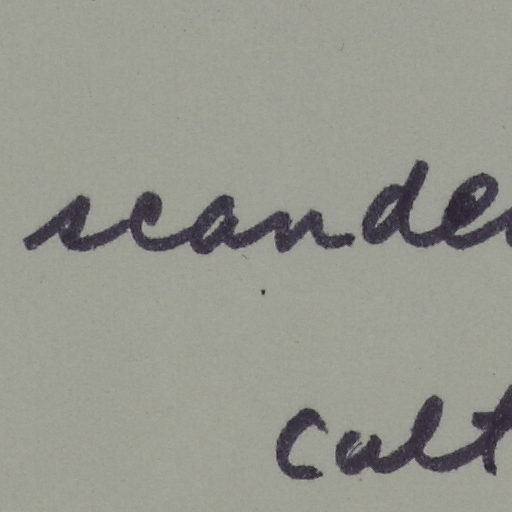 scande
Calt